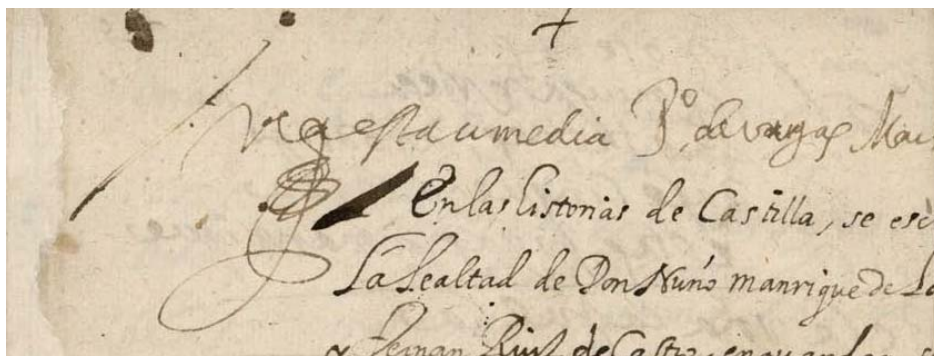 Vea esta comedia P.º de Vargas Mac
En las historias de Castilla, se esc
La Lealtad de Don Nuño Manrique de La
y Fernan Ruiz de Castro